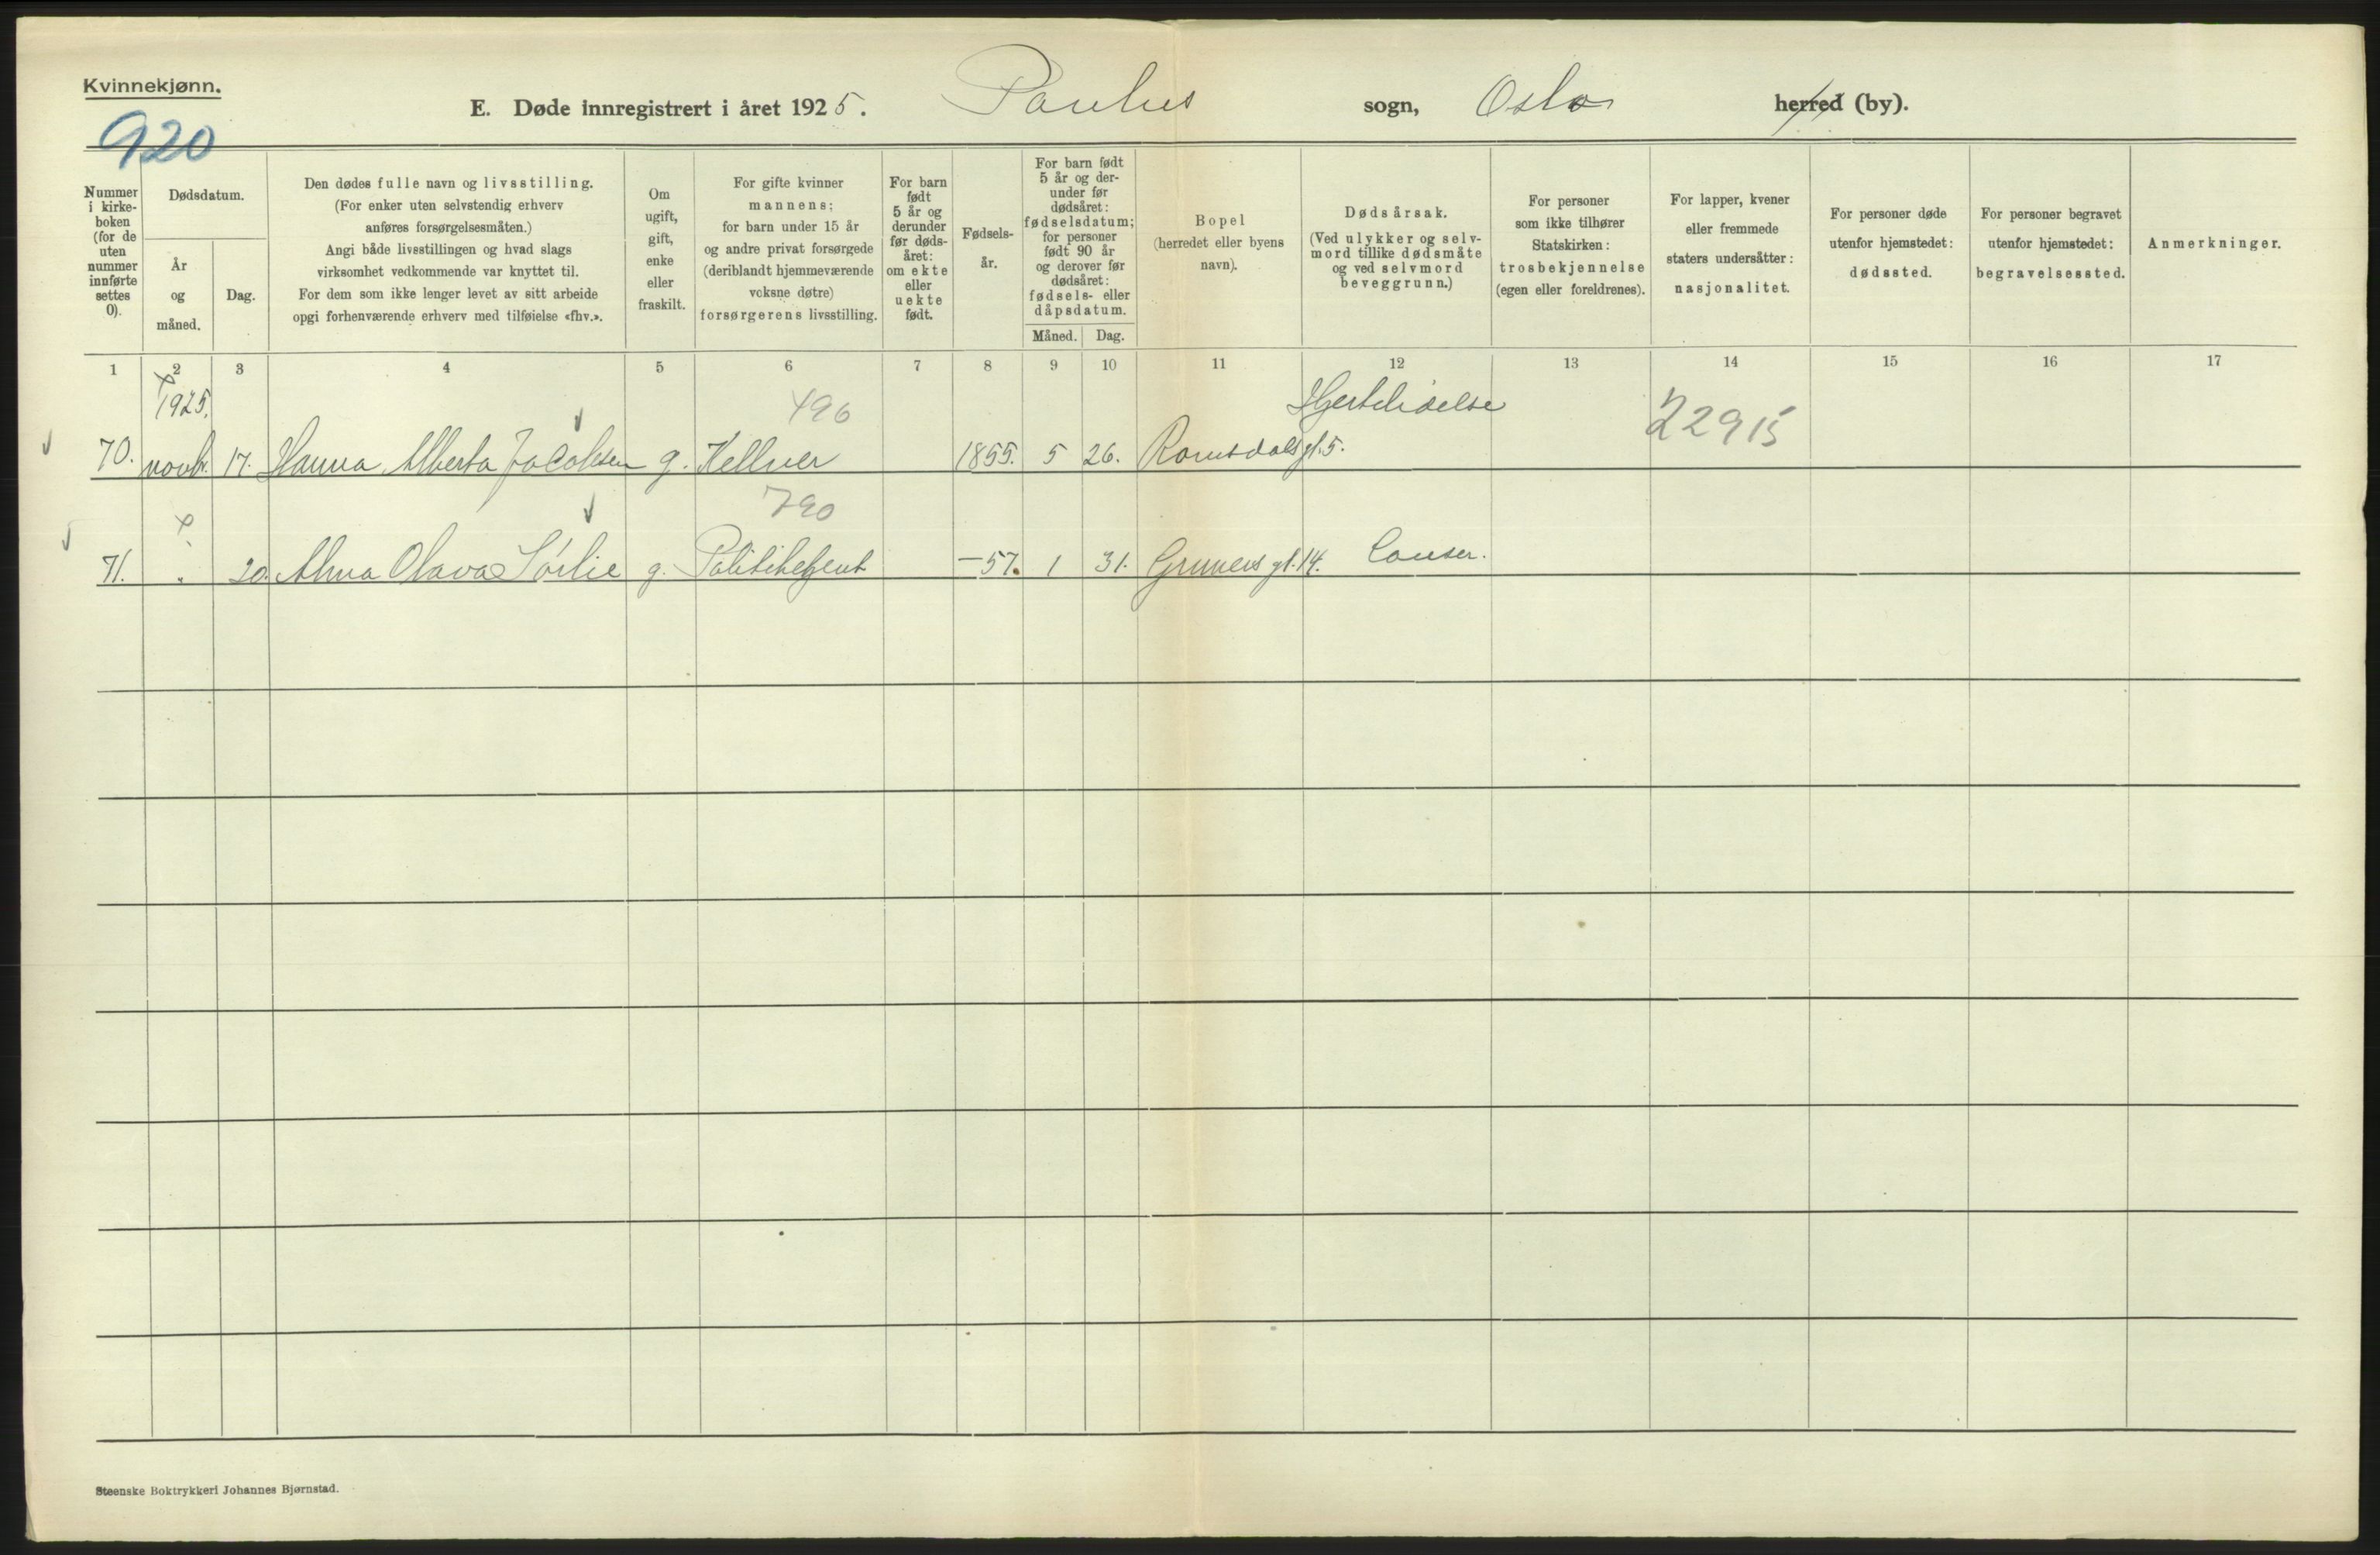 Kvinnekjønn.
920
E. Døde innregistrert i året 1925. Paulus sogn, Oslo herred (by).
Nummer i kirke-boken (for de uten nummer innførte settes 0).
Dødsdatum.
År og måned.
Dag.
Den dødes fulle navn og livsstilling.
(For enker uten selvstendig erhverv
anføres forsørgelsesmåten.)
Angi både livsstillingen og hvad slags
virksomhet vedkommende var knyttet til.
For dem som ikke lenger levet av sitt arbeide
opgi forhenværende erhverv med tilføielse «fhv.».
Om
ugift,
gift,
enke
eller
fraskilt.
For gifte kvinner
mannens;
for barn under 15 år
og andre privat forsørgede
(deriblandt hjemmeværende
voksne døtre)
forsørgerens livsstilling.
For barn
født
5 år og
derunder
før døds-
året:
om ekte
eller
uekte
født.
Fødsels-
år.
For barn født
5 år og der-
under før
dødsåret:
fødselsdatum;
for personer
født 90 år
og derover før
dødsåret:
fødsels- eller
dåpsdatum.
Måned. Dag.
Bopel
(herredet eller byens
navn).
Dødsårsak.
(Ved ulykker og selv-
mord tillike dødsmåte
og ved selvmord
beveggrunn.)
For personer
som ikke tilhører
Statskirken:
trosbekjennelse
(egen eller foreldrenes).
For lapper, kvener
eller fremmede
staters undersåtter:
nasjonalitet.
For personer døde
utenfor hjemstedet:
dødssted.
For personer begravet
utenfor hjemstedet:
begravelsessted.
Anmerkninger.
1 2 3 4 5 6 7 8 9 10 11 12 13 14 15 16 17
1925.
496
Hjertelidelse
22915
70. novb. 17. Hanna Alberta Jacobsen g. Kellner 1855. 5 26. Romsdalsgt. 5.
790
71. " 20. Alma Olava Sørlie g. Politibetjent -57. 1 31. Gruners gt. 14. Canser.
Steenske Boktrykkeri Johannes Bjørnstad.